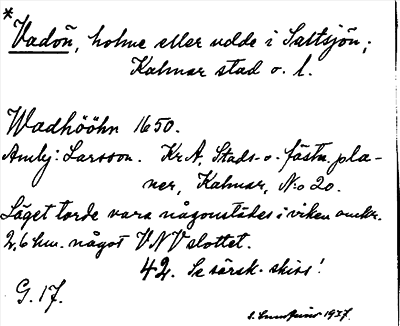 *
Vadön, holme eller udde i Saltsjön;
Kalmar stad o. l.
Wadhööhn 1650.
Ambj: Larsson. Kr A, Stads- o. fästn. pla-
ner, Kalmar, N:o 20.
Läget torde vara någonstädes i viken omkr.
2,6 km. något VNV slottet.
42. Se särsk. skiss!
G. 17.
1937.